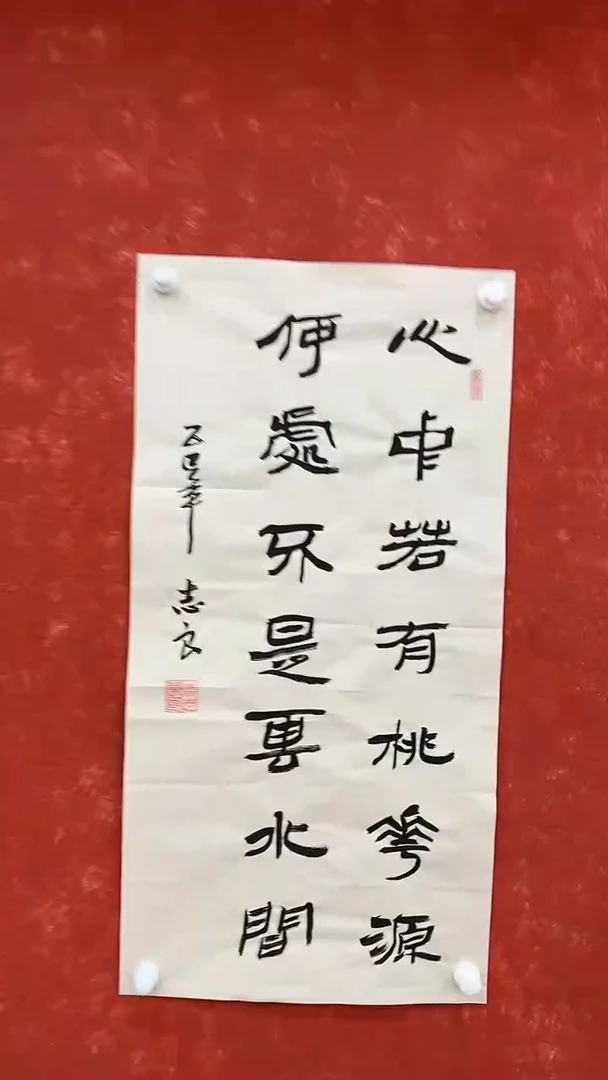 心中若有桃華源
何處不是雲水間
乙巳年 志良